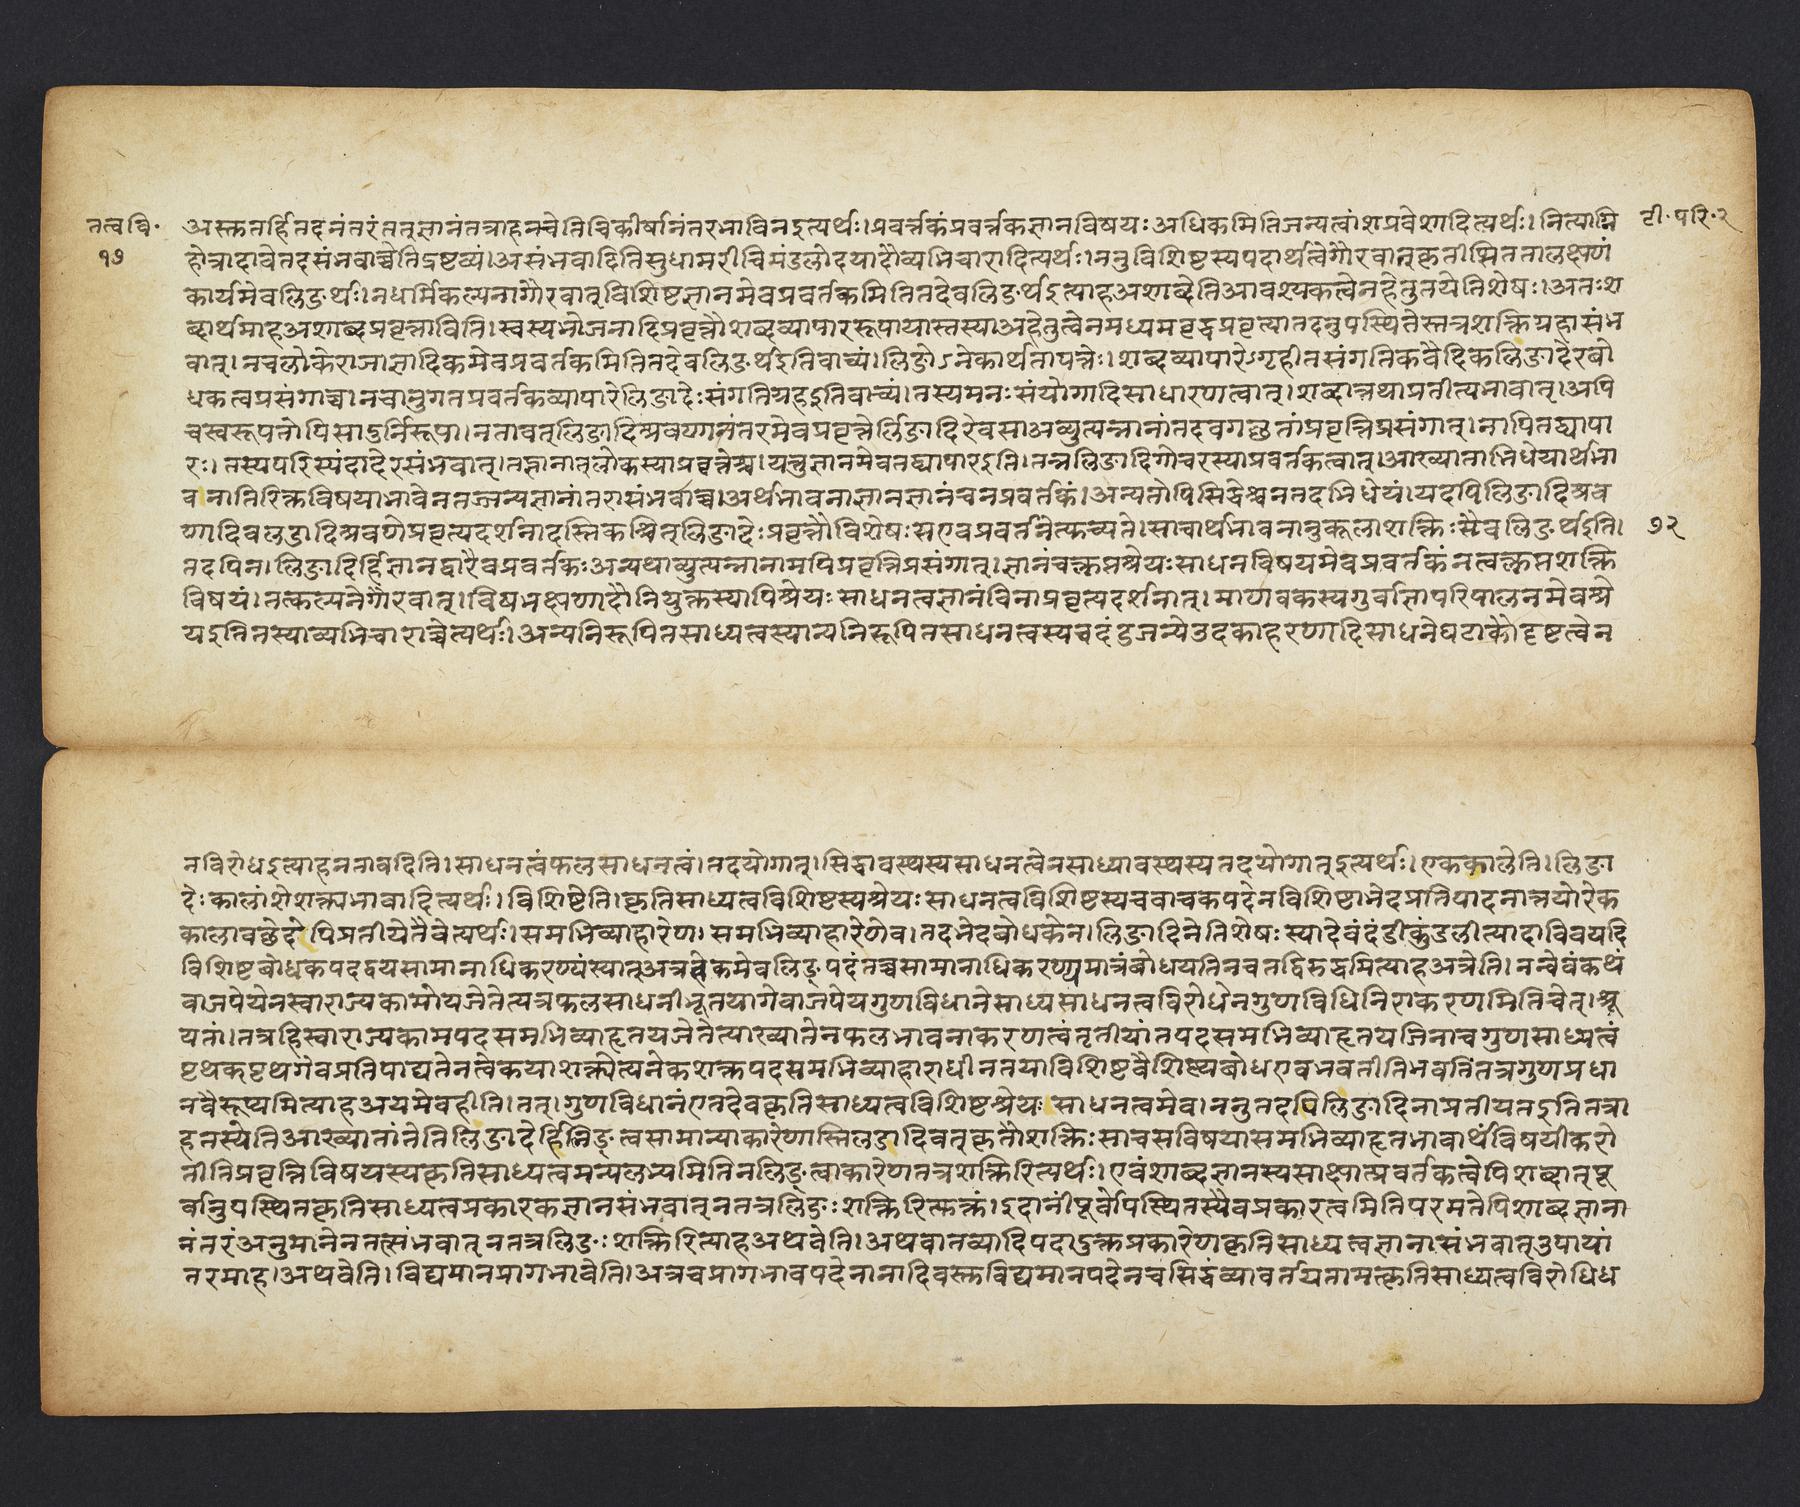 तत्वबि॰ अस्त्तर्हि तदनंतरं तत् ज्ञानं तत्राह नचेति चिकीर्षानंतरभाविनइत्यर्थः। प्रवर्त्तकं प्रवर्त्तकज्ञानविषयः अधिकमिति जन्यत्वांशप्रवेशादित्यर्थः। नित्याग्नि टी॰परि॰२
१७ होत्रादावेतदसंभवाच्चेति द्रष्टव्यं। असंभवादिति सुधामरीचिमंडलोदयादौ व्यभिचारादित्यर्थः। ननु विशिष्टस्य पदार्थत्वे गौरवात् कृतीप्सिततालक्षणं
कार्यमेव लिङर्थः। नधर्मिकल्पनागौरवात् विशिष्टज्ञानमेव प्रवर्तकमिति तदेव लिङर्थइत्याह अशाब्देति आवश्यकत्वेन हेतुतयेतिशेषः। अतःश
ब्दार्थमाह अशाब्दप्रवृत्ताविति। स्वस्य भोजनादिप्रवृत्तौ शब्दव्यापाररूपायास्तस्या अहेतुत्वेन मध्यमवृद्धप्रवृत्त्या तदनुपस्थितेस्तत्र शक्तिग्रहासंभ
वात्। नच लोके राजाज्ञादिकमेव प्रवर्तकमिति तदेव लिङर्थइतिवाच्यं। लिङोऽनेकार्थतापत्तेः। शब्दव्यापारेऽगृहीतसंगतिकवैदिकलिङादेरबो
धकत्वप्रसंगाच्च। नचानुगतप्रवर्तकव्यापारेलिङादेः संगतिग्रहइतिवाच्यं। तस्य मनःसंयोगादिसाधारणत्वात्। शब्दात्तथाप्रतीत्यभावात्। अपि
च स्वरूपतोपि सा दुर्निरूपा। नतावत् लिङादिश्रवणानंतरमेव प्रवृत्तेर्लिङादिरेव सा अव्युत्पन्नानां तदवगच्छतां प्रवृत्तिप्रसंगात्। नापि तद्व्यापा
रः। तस्य परिस्पंदादेरसंभवात्। तज्ञानात् लोकस्याप्रवृत्तेश्च। यत्तु ज्ञानमेव तद्व्यापारइति। तन्न लिङादिगोचरस्याप्रवर्तकत्वात्। आख्याताभिधेयार्थभा
वनातिरिक्तविषयाभावेन तज्जन्यज्ञानांतरासंभवाच्च। अर्थभावनाज्ञानज्ञानं च न प्रवर्तकं। अन्यतोपि सिद्धेश्च न तदभिधेयं। यदपि लिङादिश्रव
णादिवलडादिश्रवणे प्रवृत्त्यदर्शनादस्ति कश्चित् लिङादेः प्रवृत्तौ विशेषः स एव प्रवर्तनेत्युच्यते। साचार्थभावनानुकूला शक्तिः सैव लिङर्थइति। ७२
तदपि न। लिङादिर्हि ज्ञानद्वारैव प्रवर्तकः अन्यथा व्युत्पन्नानामपि प्रवृत्तिप्रसंगात्। ज्ञानं च कॢप्तश्रेयःसाधनविषयमेव प्रवर्तकं नत्वकॢप्तशक्ति
विषयं। तत्कल्पने गौरवात्। विषभक्षणादौ नियुक्तस्यापि श्रेयःसाधनत्वज्ञानं विना प्रवृत्त्यदर्शनात्। माणवकस्य गुर्वाज्ञापरिपालनमेव श्रे
यइति तस्याव्यभिचाराच्चेत्यर्थः। अन्यनिरूपितसाध्यत्वस्यान्यनिरूपितसाधनत्वस्य च दंडजन्ये उदकाहरणादिसाधने घटादौ दृष्टत्वेन
न विरोधइत्याह नतावदिति। साधनत्वं फलसाधनत्वं। तदयोगात्। सिद्धावस्थस्य साधनत्वेन साध्यावस्थस्य तदयोगात्इत्यर्थः। एककालेति। लिङा
देः कालांशे शक्त्यभावादित्यर्थः। विशिष्टेति। कृतिसाध्यत्वविशिष्टस्य श्रेयःसाधनत्वविशिष्टस्य च वाचकपदेन विशिष्टाभेदप्रतिपादनात्तयोरेक
कालावछेदोपि प्रतीयेतैवेत्यर्थः। समभिव्याहारेण। समभिव्याहारेणैव। तदभेदबोधकेन। लिङादिनेतिशेषः स्यादेवं दंडी कुंडलीत्यादाविव यदि
विशिष्टबोधकपदद्वयसामानाधिकरण्यं स्यात् अत्रत्वेकमेव लिङ्पदं तच्च सामानाधिकरण्यमात्रं बोधयति नच तद्विरुद्धमित्याह अत्रेति। नन्वेवं कथं
वाजपेयेन स्वाराज्यकामो यजेतेत्यत्र फलसाधनीभूतयागे वाजपेयगुणविधाने साध्यसाधनत्वविरोधेन गुणविधिनिराकरणमितिचेत्। श्रू
यतां। तत्र हि स्वाराज्यकामपदसमभिव्याहृतयजेतेत्याख्यातेन फलभावनाकरणत्वं तृतीयांतपदसमभिव्याहृतयजिना च गुणसाध्यत्वं
पृथक्पृथगेव प्रतिपाद्यते नत्वेकया शक्त्येत्यनेकशक्तपदसमभिव्याहाराधीनतया विशिष्टवैशिष्ट्यबोध एव भवतीति भवति तत्र गुणप्रधा
नवैरूप्यमित्याह अयमेवहीति। तत्। गुणविधानं एतदेव कृतिसाध्यत्वविशिष्टश्रेयःसाधनत्वमेव। ननु तदपि लिङादिना प्रतीयतइति तत्रा
ह तस्येति आख्यातांतेति लिङादेर्हि लिङ्त्वसामान्याकारेणास्ति लडादिवत् कृतौ शक्तिः सा च सविषया समभिव्याहृतभावार्थं विषयीकरो
तीति प्रवृत्तिविषयस्य कृतिसाध्यत्वमन्यलभ्यमिति न लिङ्त्वाकारेण तत्र शक्तिरित्यर्थः। एवं शाब्दज्ञानस्य साक्षात्प्रवर्तकत्वेपि शब्दात् पू
र्वानुपस्थितकृतिसाध्यत्वप्रकारकज्ञानसंभवात् न तत्र लिङः शक्तिरित्युक्तं। इदानीं पूर्वोपस्थितस्यैव प्रकारत्वमिति परमतेपि शाब्दज्ञाना
नंतरं अनुमानेन तत्संभवात् न तत्र लिङः शक्तिरित्याह अथवेति। अथवा तव्यादिपदादुक्तप्रकारेण कृतिसाध्यत्वज्ञानासंभवात् उपायां
तरमाह। अथवेति। विद्यमानप्रागभावेति। अत्र च प्रागभावपदेनानादिवस्तु विद्यमानपदेन च सिद्धं व्यावर्तयता मत्कृतिसाध्यत्वविरोधिध